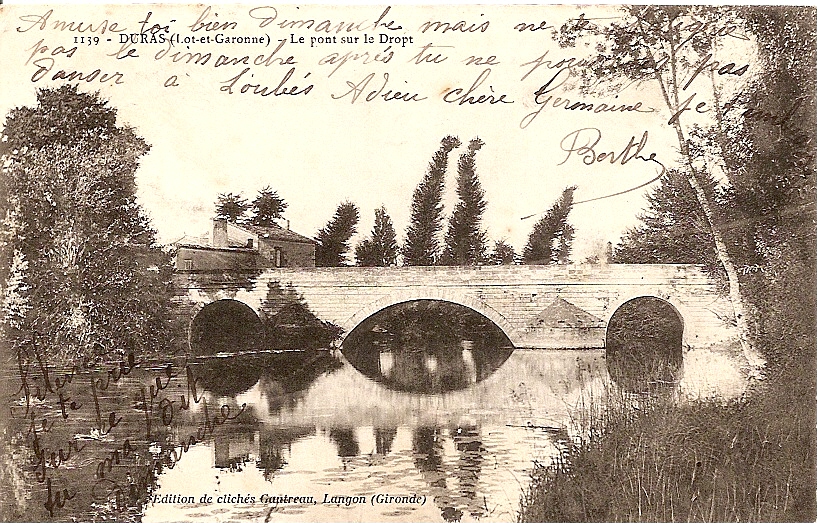 Amuse toi bien dimanche mais ne
1139 - DURAS (Lot-et-Garonne) - Le pont sur le Dropt
pas le dimanche aprés tu ne pas
danser à Loubés Adieu chère Germaine je
Berthe
Silence
je te prie
sur ce que
tu ma dit
dimanche
Edition de clichés Gautreau, Langon (Gironde)